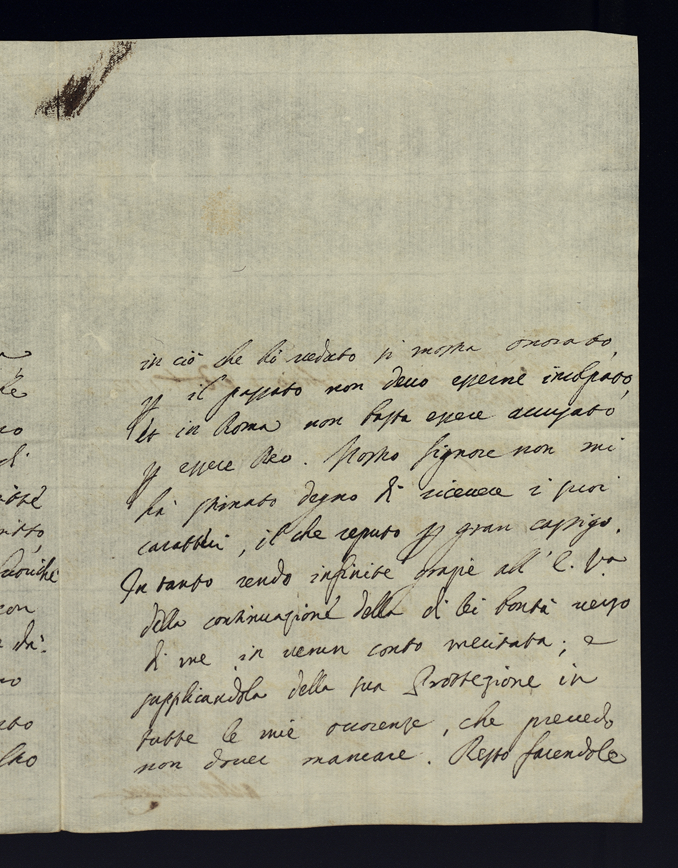 in ciò che hò veduto si mostra onorato,
p il passato non devo esserne incolpato,
et in Roma non basta essere accusato
p essere Reo. Nostro Signore non mi
hà stimato degno di ricevere i suoi
caratteri, il che reputo p gran castigo.
In tanto rendo infinite grazie all' E. Va
della continuazione della di lei bontà verso
di me in verun conto meritata; e
supplicandola della sua Protezione in
tutte le mie occorenze, che prevedo
non dover mancare. Resto facendole